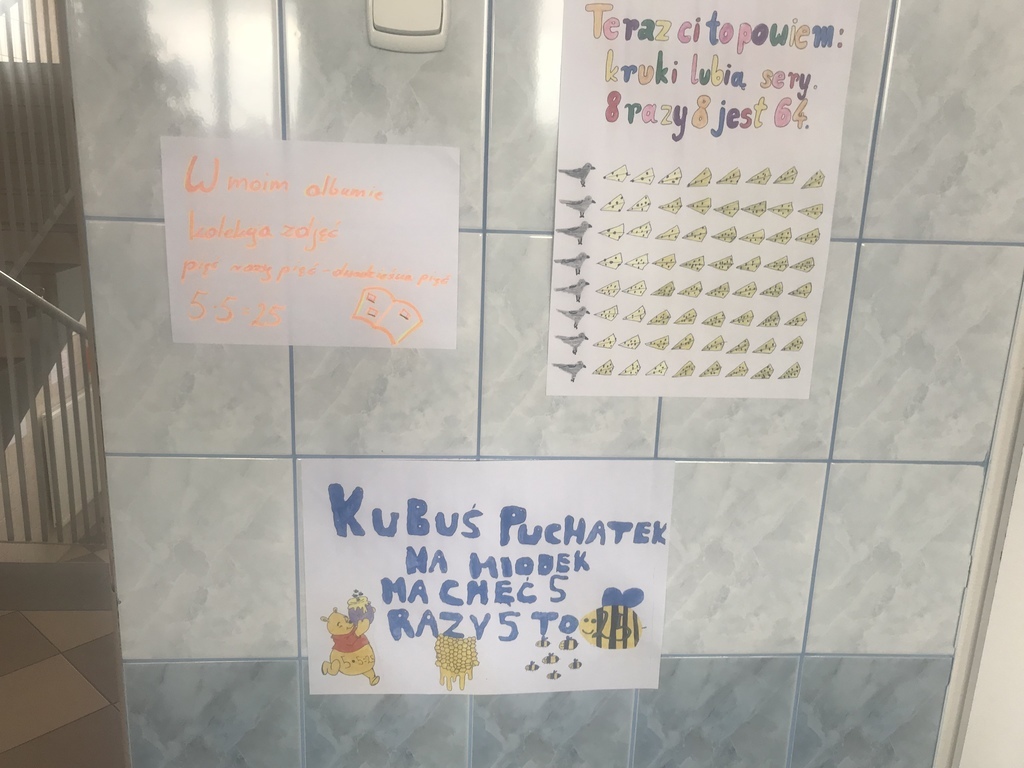 Teraz ci to powiem:
kruki lubią sery.
8 razy 8 jest 64.
W moim albumie
kolekcja zdjęć
pięć razy pięć - dwadzieścia pięć
5·5=25
KUBUŚ PUCHATEK
NA MIODEK
MA CHĘĆ 5
RAZY 5 TO 25